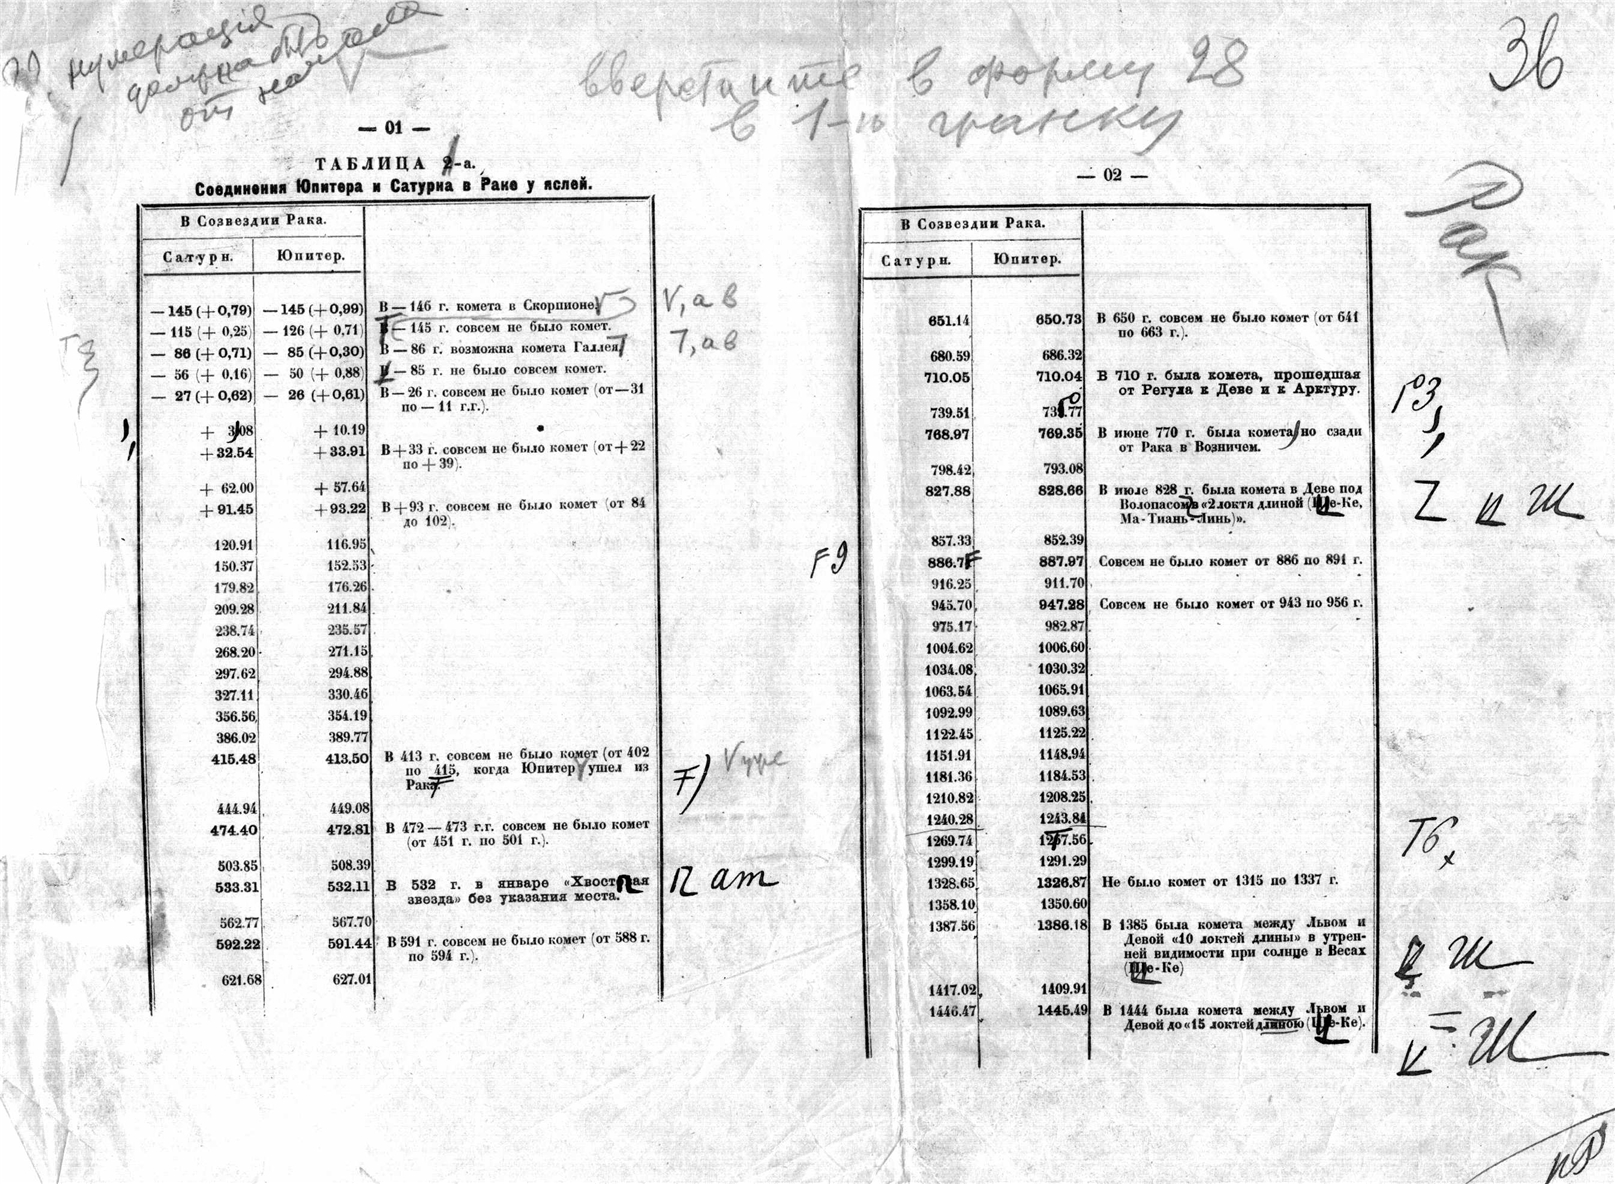 нумерація
должна быть
от начала
вверстайте в форму 28
в 1-ю гранку
36
— 01 —
ТАБЛИЦА -а.
Соединения Юпитера и Сатурна в Раке у яслей.
В Созвездии Рака.
Сатурн. Юпитер.
— 145 (+ 0,79) — 145 (+ 0,99) В — 146 г. комета в Скорпионе.
— 115 (+ 0,25) — 126 (+ 0,71) В — 145 г. совсем не было комет.
— 86 (+ 0,71) — 85 (+ 0,30) В — 86 г. возможна комета Галлея
— 56 (+ 0,16) — 50 (+ 0,88) — 85 г. не было совсем комет.
— 27 (+ 0,62) — 26 (+ 0,61) В — 26 г. совсем не было комет (от — 31
по — 11 г.г.).
+ 3,08 + 10.19
+ 32.54 + 33.91 В + 33 г. совсем не было комет (от + 22
по + 39).
+ 62.00 + 57.64
+ 91.45 + 93.22 В + 93 г. совсем не было комет (от 84
до 102).
120.91 116.95
150.37 152.53
179.82 176.26
209.28 211.84
238.74 235.57
268.20 271.15
297.62 294.88
327.11 330.46
356.56 354.19
386.02 389.77
415.48 413.50 В 413 г. совсем не было комет (от 402
по 415, когда Юпитер ушел из
Рака.
444.94 449.08
474.40 472.81 В 472 — 473 г.г. совсем не было комет
(от 451 г. по 501 г.).
503.85 508.39
533.31 532.11 В 532 г. в январе «Хвостатая
звезда» без указания места.
562.77 567.70
592.22 591.44 В 591 г. совсем не было комет (от 588 г.
по 594 г.).
621.68 627.01
V, а в
Т, а в
F)
V
П ат
— 02 —
Рак
В Созвездии Рака.
Сатурн. Юпитер.
651.14 650.73 В 650 г. совсем не было комет (от 641
по 663 г.).
680.59 686.32
710.05 710.04 В 710 г. была комета, прошедшая
от Регула к Деве и к Арктуру.
739.51 .77
768.97 769.35 В июне 770 г. была комета но сзади
от Рака в Возничем.
798.42 793.08
827.88 828.66 В июле 828 г. была комета в Деве под
Волопасом в «2 локтя длиной (Ше-Ке,
Ма-Тиань-Линь)».
857.33 852.39
886.7 887.97 Совсем не было комет от 886 по 891 г.
916.25 911.70
945.70 947.28 Совсем не было комет от 943 по 956 г.
975.17 982.87
1004.62 1006.60
1034.08 1030.32
1063.54 1065.91
1092.99 1089.63
1122.45 1125.22
1151.91 1148.94
1181.36 1184.53
1210.82 1208.25
1240.28 1243.84
1269.74 1267.56
1299.19 1291.29
1328.65 1326.87 Не было комет от 1315 по 1337 г.
1358.10 1350.60
1387.56 1386.18 В 1385 была комета между Львом и
Девой «10 локтей длины» в утрен-
ней видимости при солнце в Весах
(Ше-Ке)
1417.02 1409.91
1446.47 1445.49 В 1444 была комета между Львом и
Девой до «15 локтей длиною (Ше-Ке).
F 9
Ш
Т 6
Ш
Ш